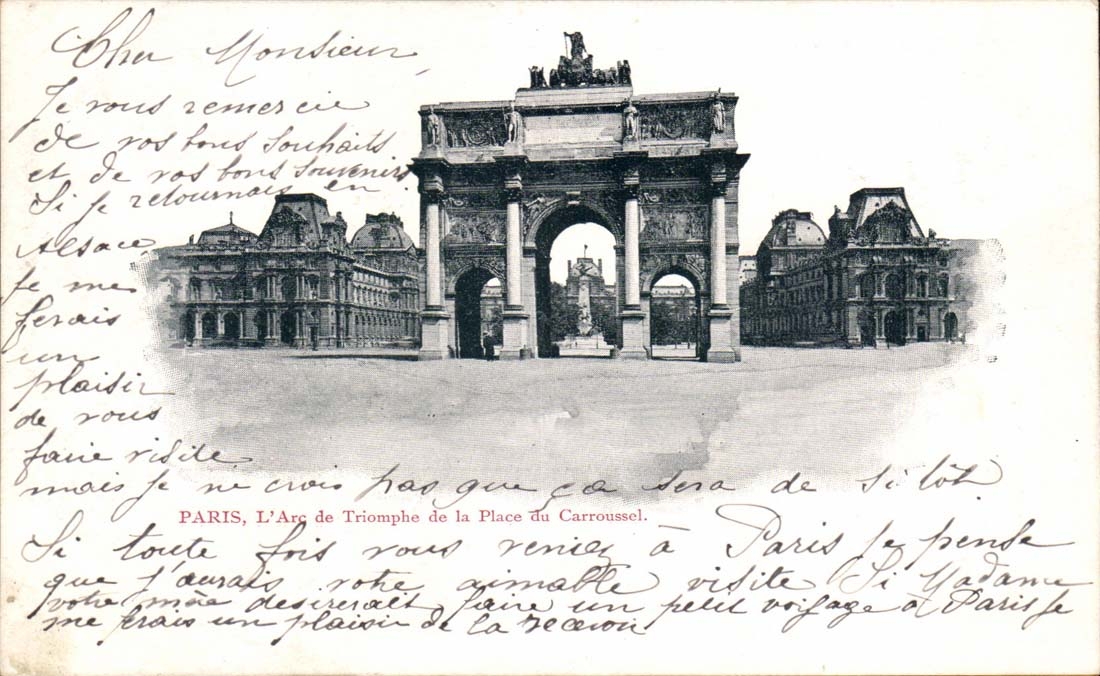 Cher Monsieur,
Je vous remercie
de vos bons souhaits
et de vos bons souvenirs.
Si je retournais en
Alsace,
je me
ferais
un
plaisir
de vous
faire visite
mais je ne crois pas que ça sera de si lôt
PARIS, L'Arc de Triomphe de la Place du Carroussel.
Si toute fois vous veniez à Paris je pense
que j'aurais votre aimable visite Si Madame
votre mère desirerait faire un petit voyage à Paris je
me ferais un plaisir de la recevoir